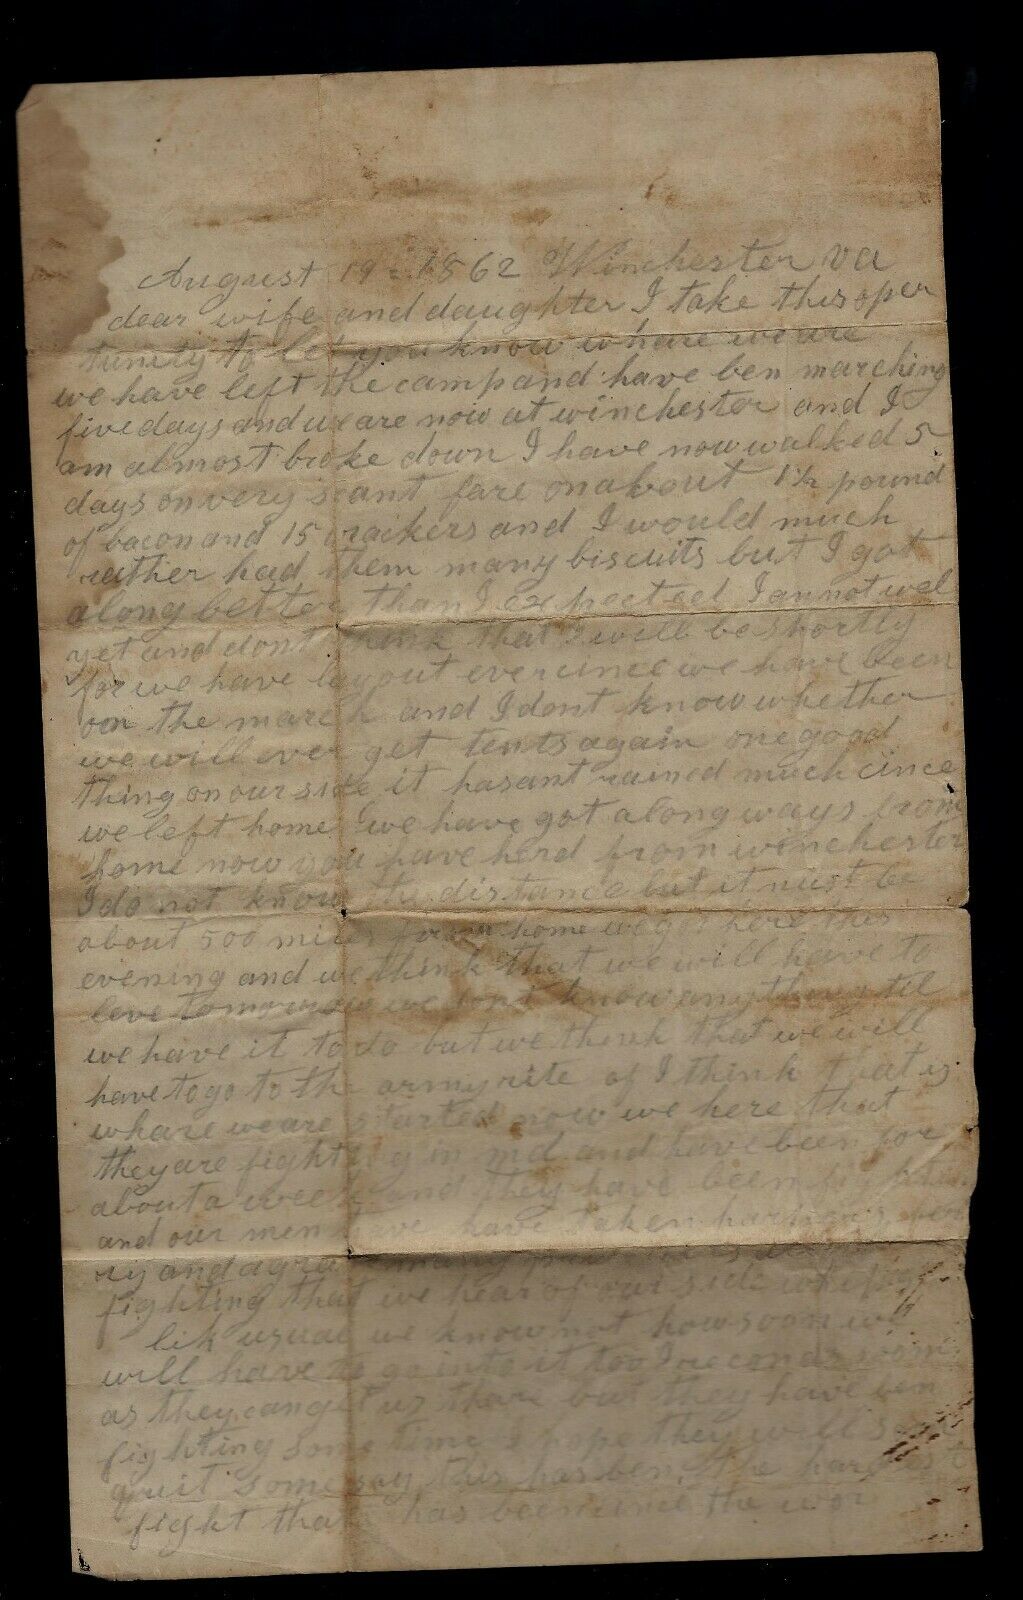 August 19 = 1862 Winchester va
dear wife and daughter I take this oper
tunity to let you know whare we are
we have left the camp and have ben marching
five days and we are now at winchester and I
am almost broke down I have now walked 5
days on very scant fare on about 1½ pound
of bacon and 15 crackers and I would much
rather had them many biscuits but I got
along better than I expected I am not wel
yet and dont think that I will be shortly
for we have lay out ever cince we have been
on the march and I dont know whether
we will ever get tents again one good
thing on our side it hasant rained much cince
we left home we have got a long ways from
home now you have herd from winchester
I do not know the distance but it must be
about 500 miles from home we got here this
evening and we think that we will have to
leve tomorrow we dont know any thing til
we have it to do but we think that we will
have to go to the army rite of I think that is
whare we are started now we here that
they are fighting in md and have been for
about a week and they have been fighting
and our men have have taken harpers fer
ry and a great many
fighting that we hear of our side whips
lik usual we know not how soon we
will have to go into it too I recon as soon
as they can get us thare but they have ben
fighting some time I hope they will
quit some say this has ben the hardest
fight that has been cince the wor